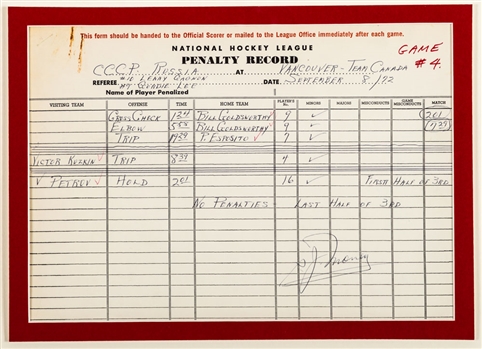 This form should be handed to the Official Scorer or mailed to the League Office immediately after each game.
NATIONAL HOCKEY LEAGUE
PENALTY RECORD
GAME
#4.
C.C.C.P. RUSSIA AT VANCOUVER - TEAM CANADA
REFEREE LEN GAGNON DATE SEPTEMBER 8/72
GORDIE LEE
Name of Player Penalized
VISITING TEAM OFFENSE TIME HOME TEAM PLAYER'S No. MINORS MAJORS MISCONDUCTS GAME MISCONDUCTS MATCH
CROSS CHECK 1 24 BILL GOLDSWORTHY 9 ✓ 2 01
ELBOW 5 58 BILL GOLDSWORTHY 9 ✓ 7 29
TRIP 19 29 P. ESPOSITO ✓ 7 ✓
VICTOR KUZKIN ✓ TRIP 8 39 4 ✓
✓ PETROV ✓ HOLD 2 01 16 ✓ FIRST HALF OF 3RD
NO PENALTIES LAST HALF OF 3RD